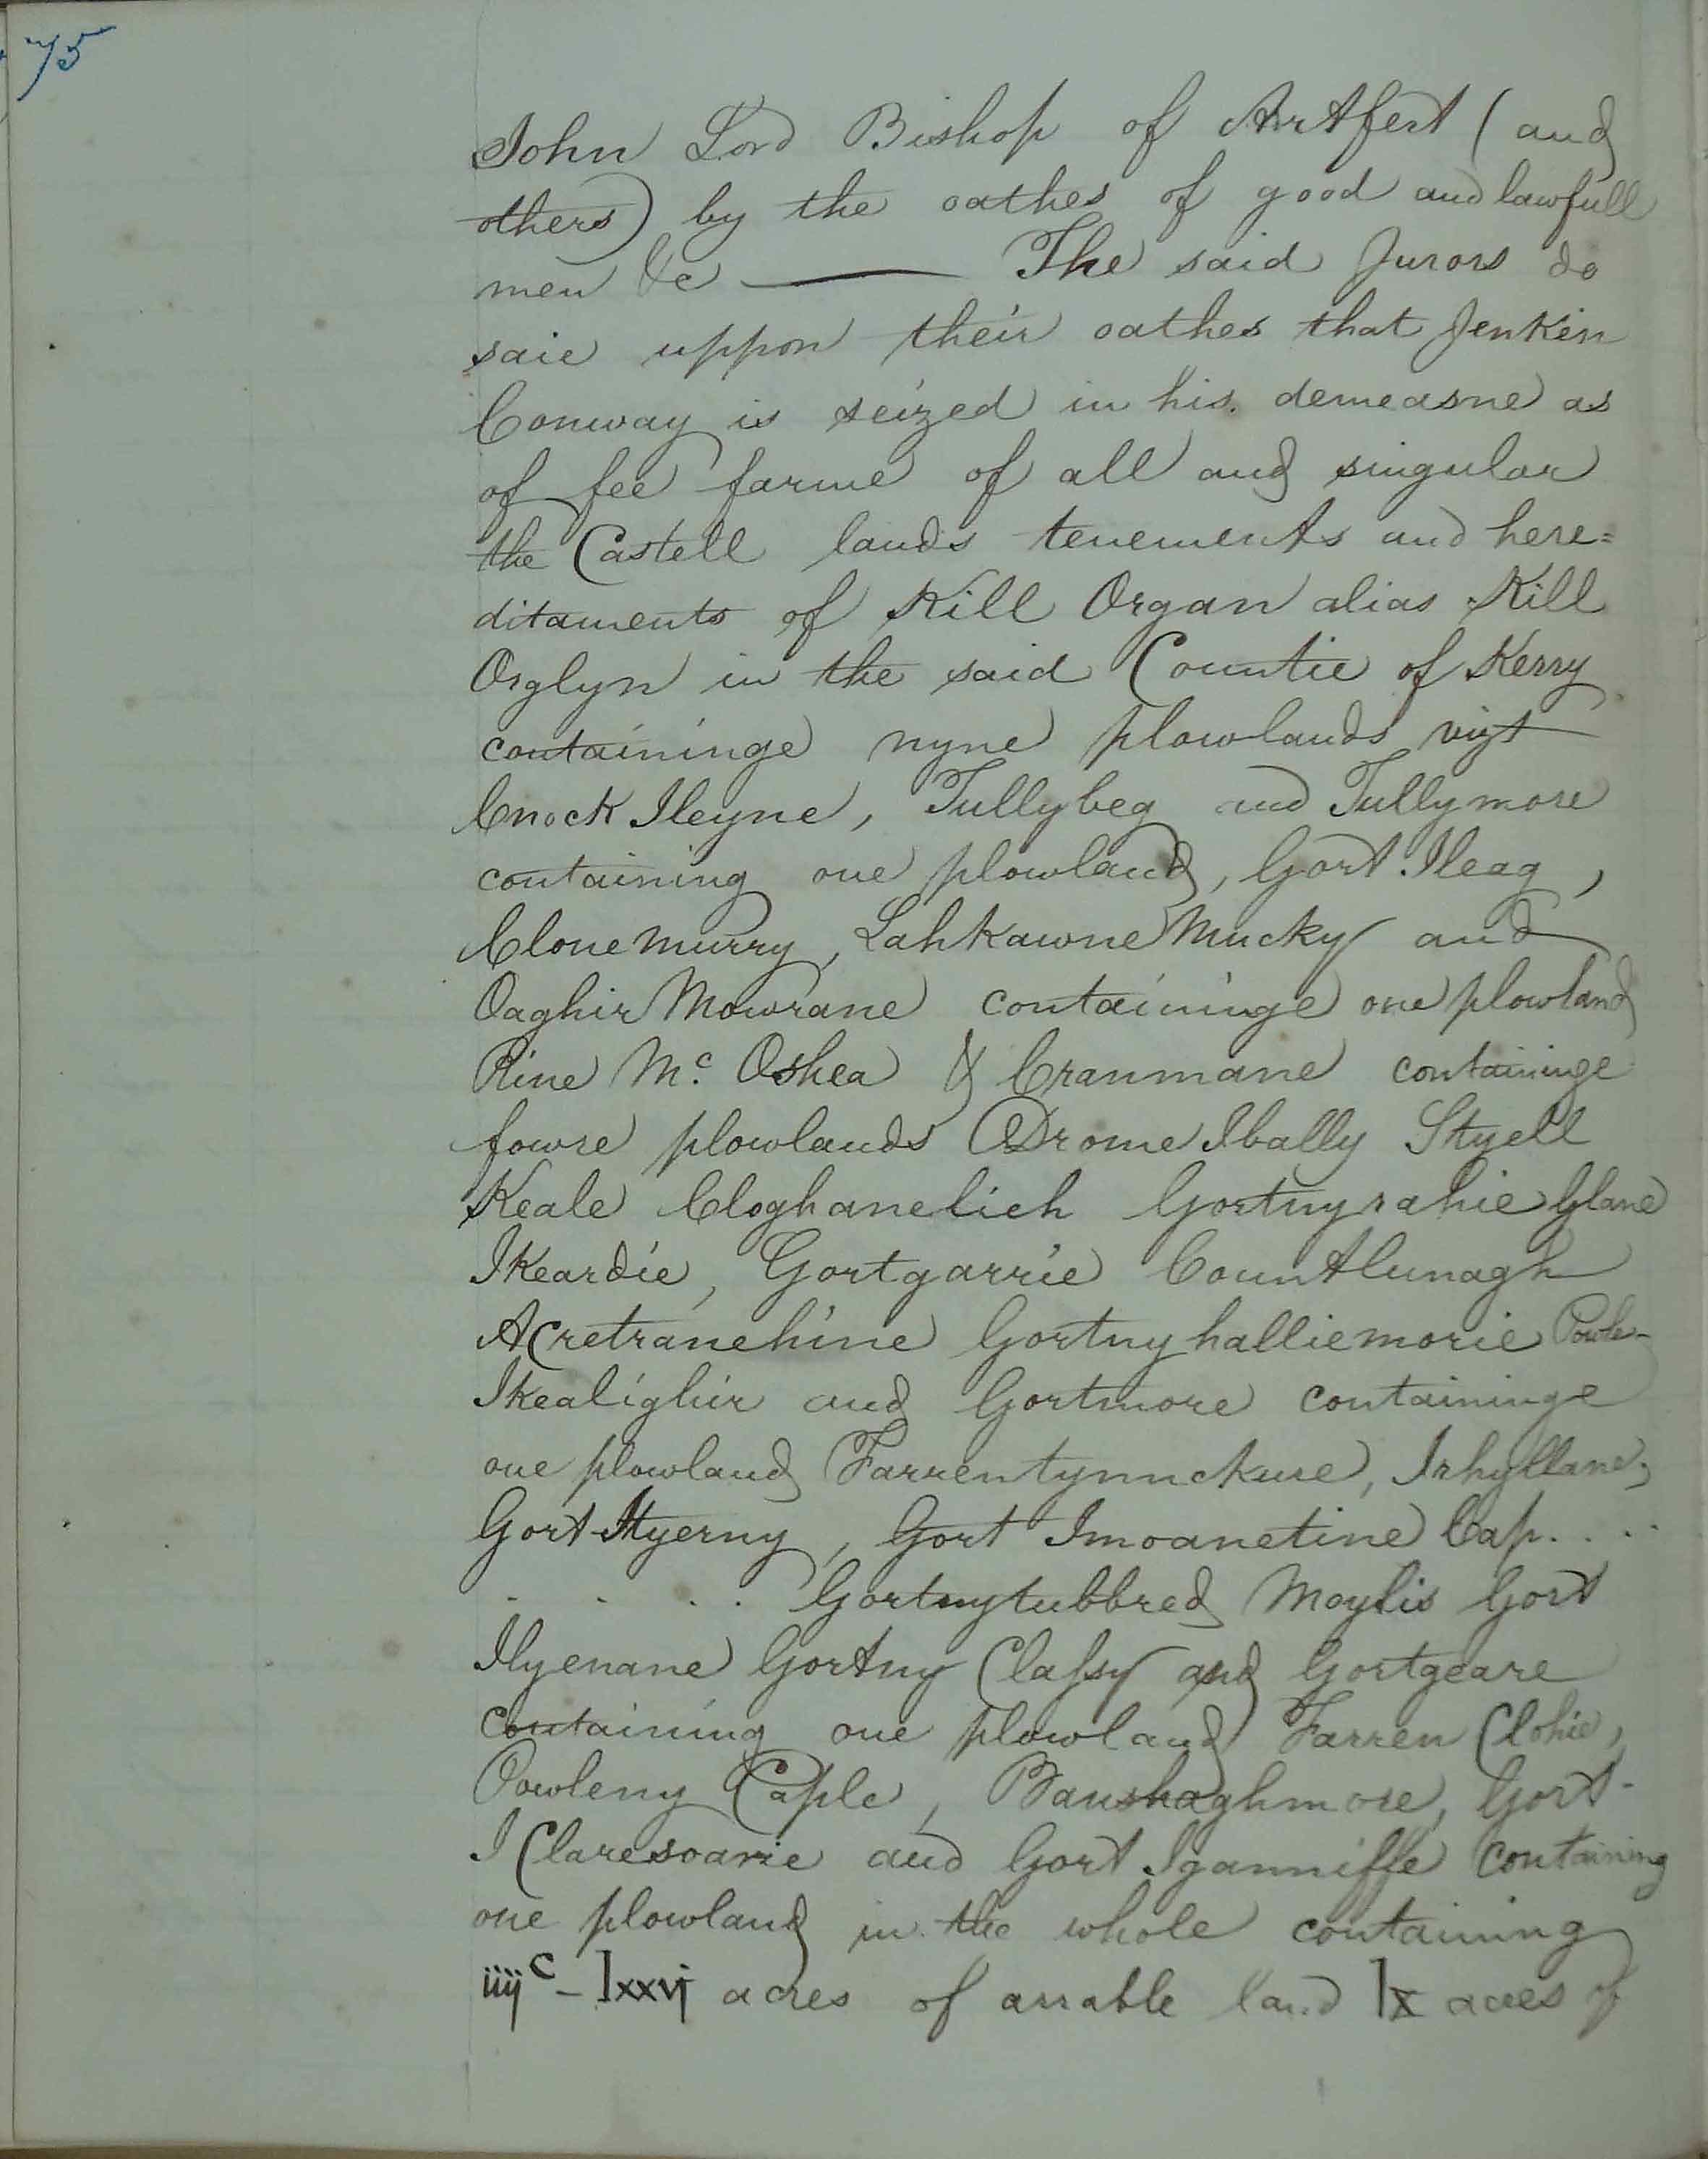 75
John Lord Bishop of Artfert (and
others) by the oathes of good and lawfull
men &c —— The said Jurors do
saie uppon their oathes that Jenkin
Conway is seized in his demeasne as
of fee farme of all and singular
the Castell lands tenements and here=
ditaments of Kill Organ alias Kill
Orglyn in the said Countie of Kerry
containinge nyne plowlands vizt
Cnock Ileyne, Tullybeg and Tullymore
containing one plowland, Gort Ileag,
Clonemurry, Lahkawne Mucky and
Oaghir Mowrane containinge one plowland
Rine Mc. Oshea & Cranmane containinge
fowre plowlands Drome Ibally Styell
Keale Cloghanelieh Gortnyrahie Glane
Ikeardie, Gortgarrie Countlunagh
Acretranehine Gortnyhalliemorie Powle-
Ikealighir and Gortmore containinge
one plowland Farrentynnckure, Irhyllane,
Gort Ityerny, Gort Imoanetine Cap. . . .
. . . . Gortnytubbred Moylis Gort
Ilyenane Gortny Classy and Gortgeare
containing one plowland Farren Clohie,
Powleny Caple, Banshaghmore, Gort-
I Claresoarie and Gort Iganniffe containing
one plowland in the whole containing
iiijc - lxxvj acres of arrable land lx acres of